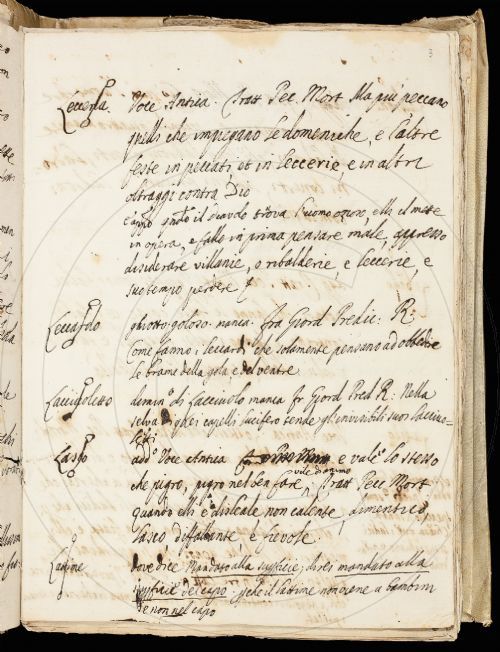 3
Leccerìa. Voce Antica. Tratt Pec Mort Ma più peccano
quelli che impiegano le domeniche, e l'altre
feste in peccati, et in leccerie, e in altri
oltraggi contra Dio
e appo qndo il diavolo trova l'uomo ozioso, elli il mette
in opera, e fallo in prima pensare male, appresso
disiderare villanie, o ribalderie, e leccerie, e
suo tempo perdere
ghiotto. goloso. manca. fra Giord Predic: R:
Come fanno i leccardi che solamente pensano ad obbedire
le brame della gola, e del ventre
Lacciuoletto dimin: di lacciuolo manca fr Giord Pred R: Nella
selva de ghei capelli lucifero tende gl'invisibili suoi lacciuo=
letti
add: Voce Antica e vale lo stesso
che pigro, pigro nel ben fare, vile d'animo Tratt Pecc Mort
quando elli è disleale non calente, dimentico,
lasco diffallante è fievole
Lattime dove dice mandato alla superficie; direi mandato alla
superficie del capo. che il lattime non viene a bambini
se non nel capo